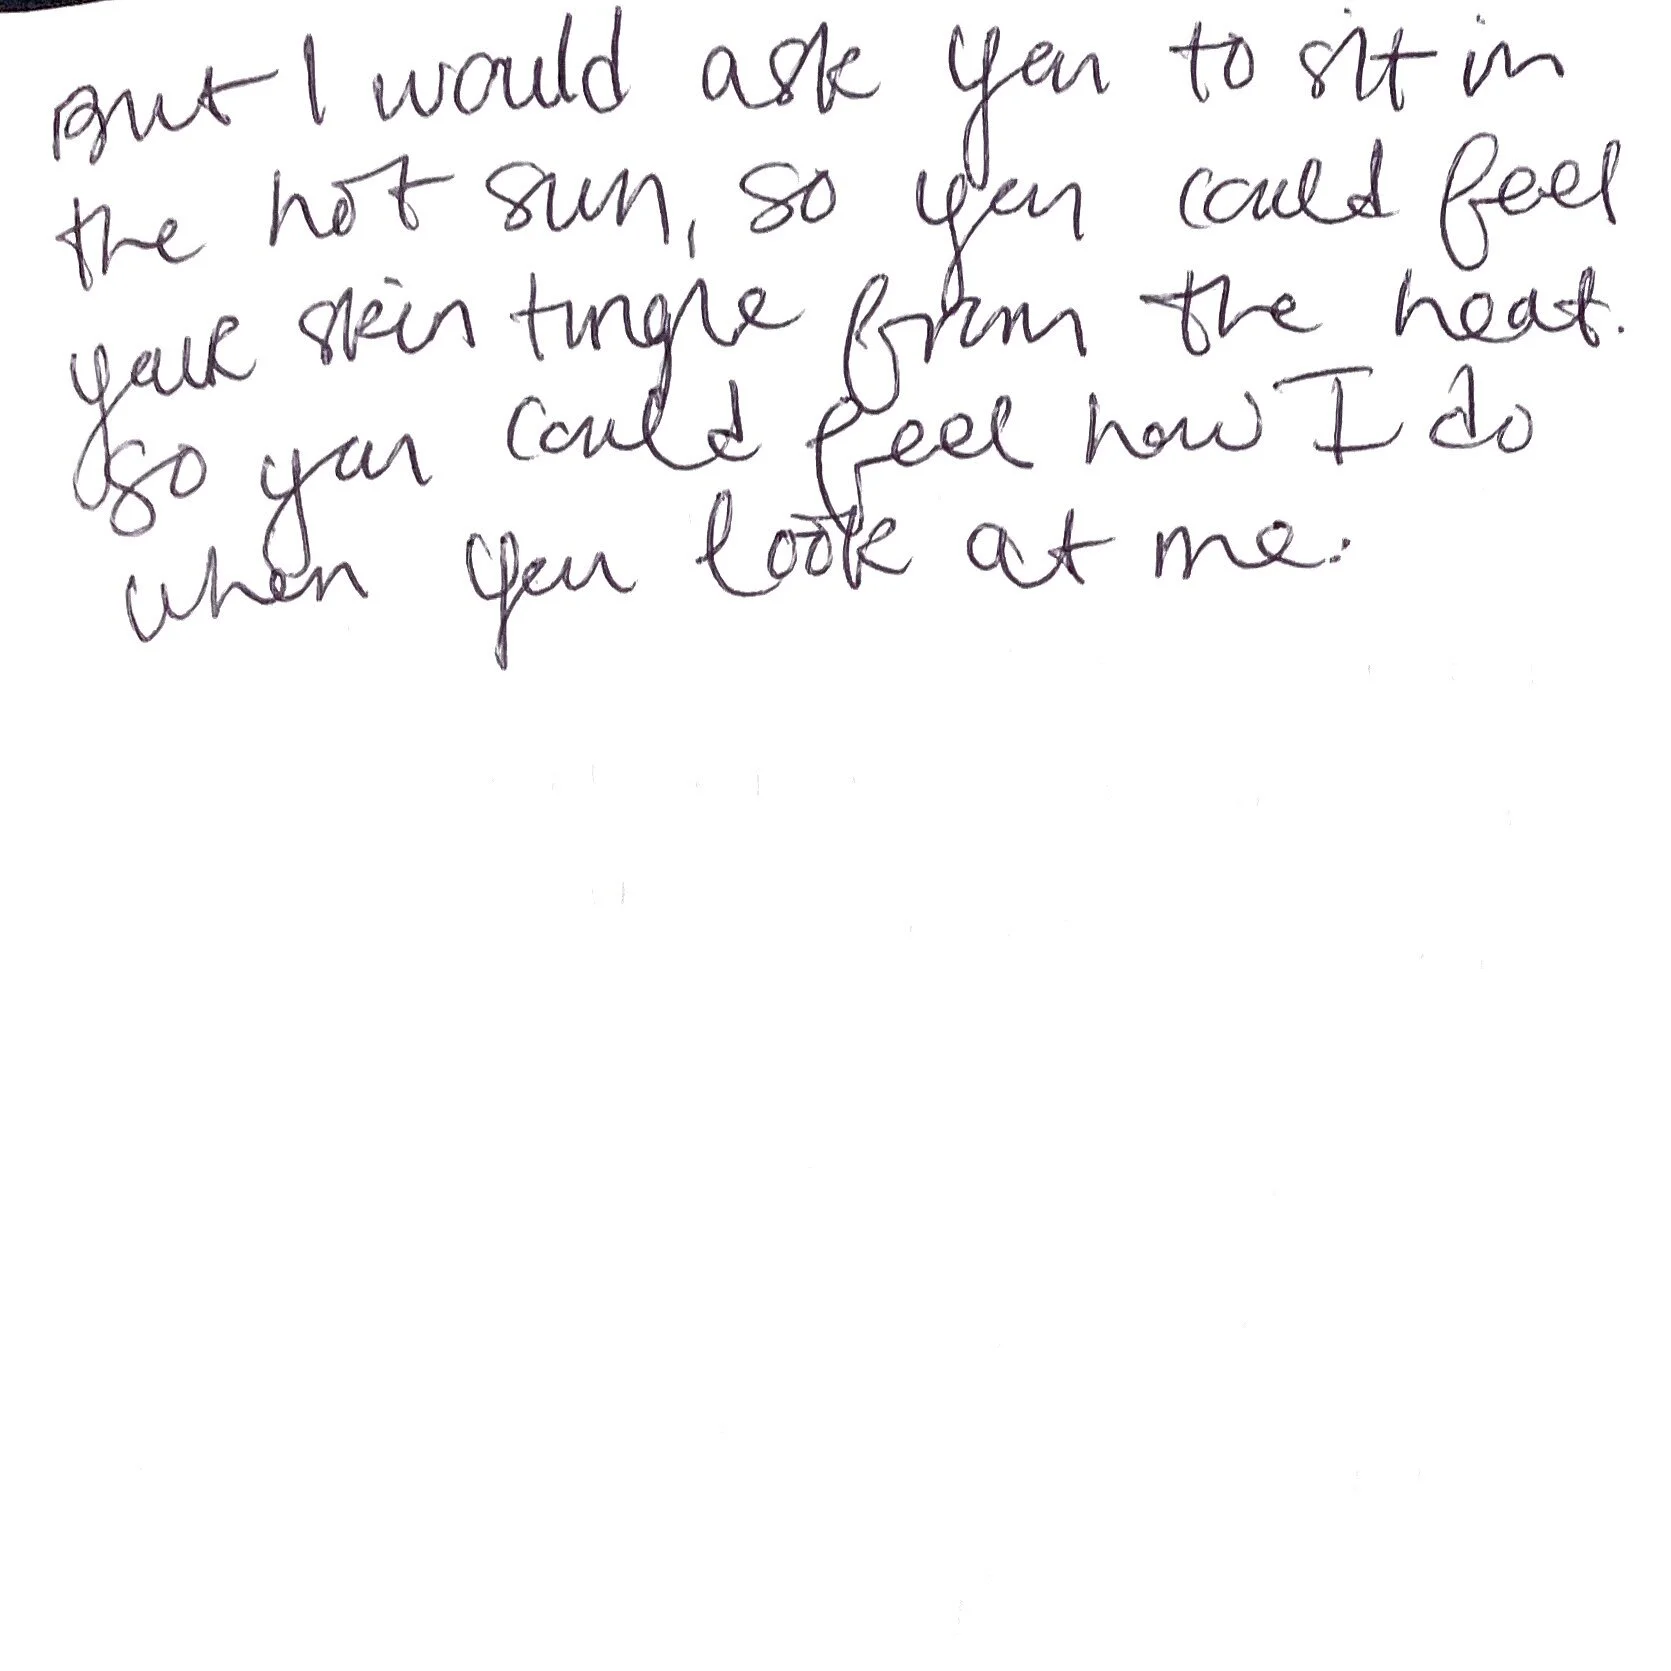 But I would ask you to sit in
the hot sun, so you could feel
your skin tingle from the heat.
so you could feel how I do
when you look at me.